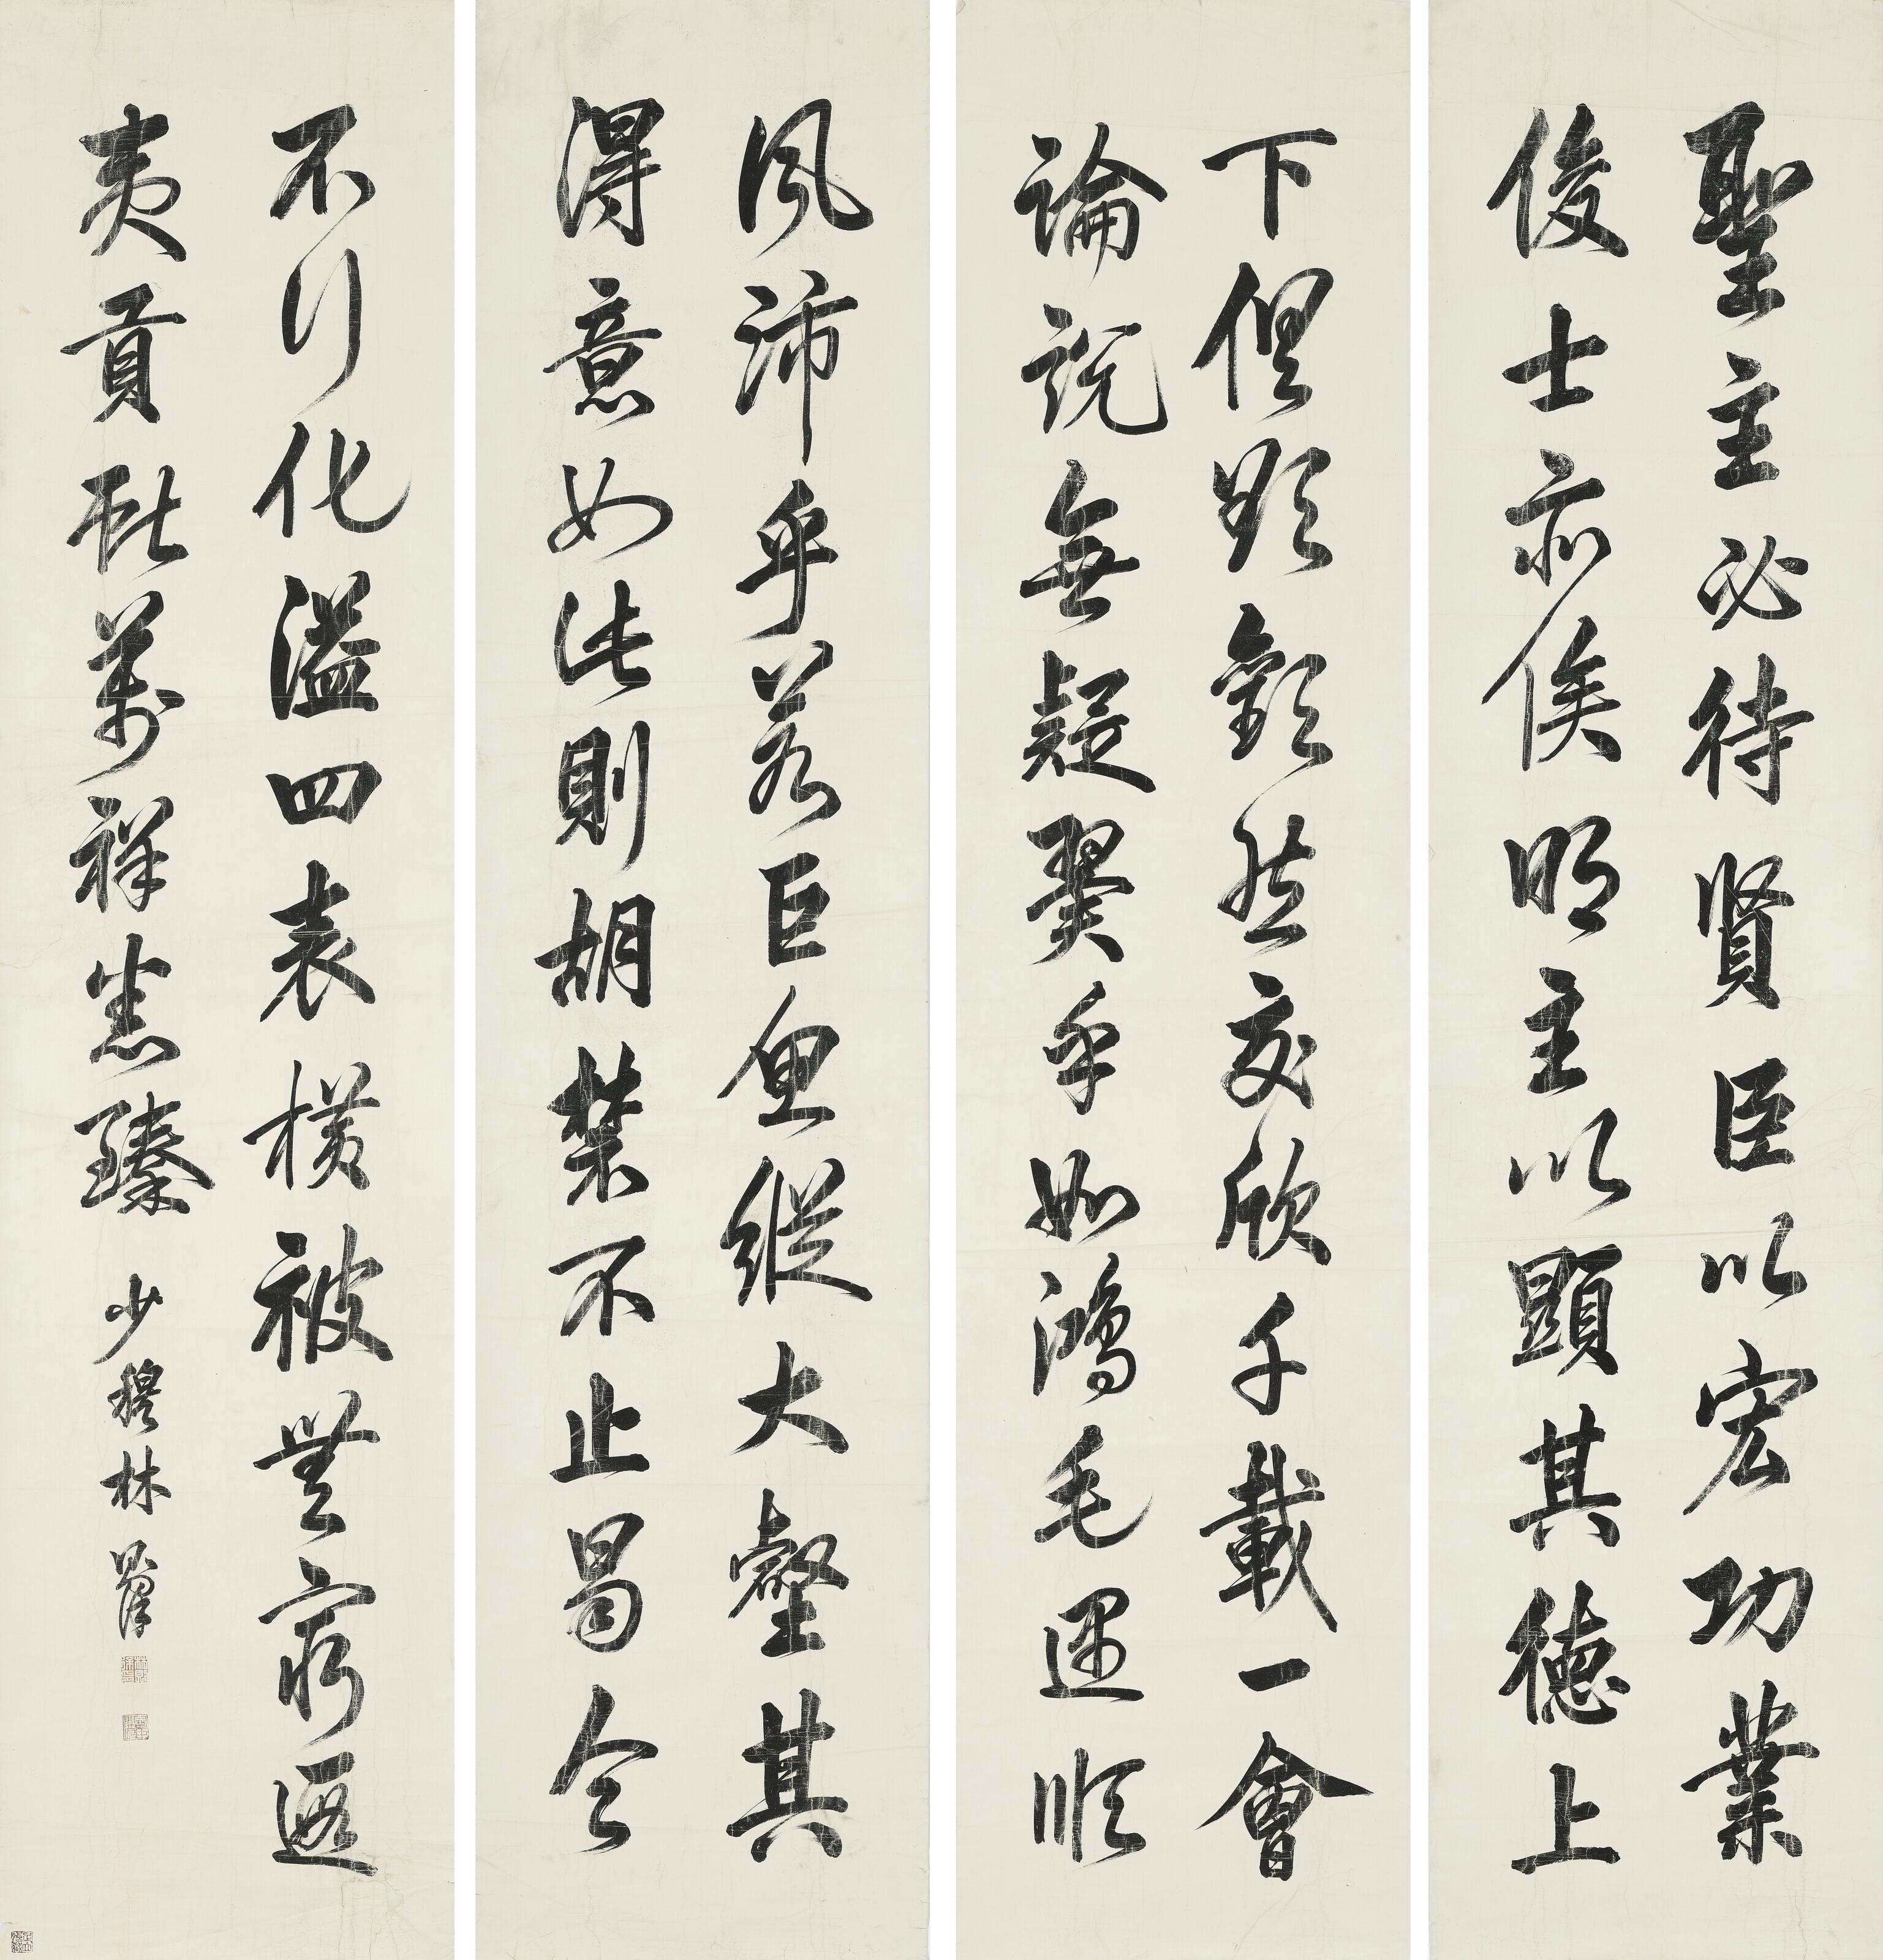 聖主必待賢臣以宏功業
俊士亦俟明主以顯其德上
下俱欲歡然交欣千載一會
論說無疑翼乎如鴻毛遇順
風沛乎若巨魚縱大壑其
得意如此則胡禁不止曷令
不行化溢四表橫被無窮遐
夷貢獻萬祥悉臻 少穆林則徐